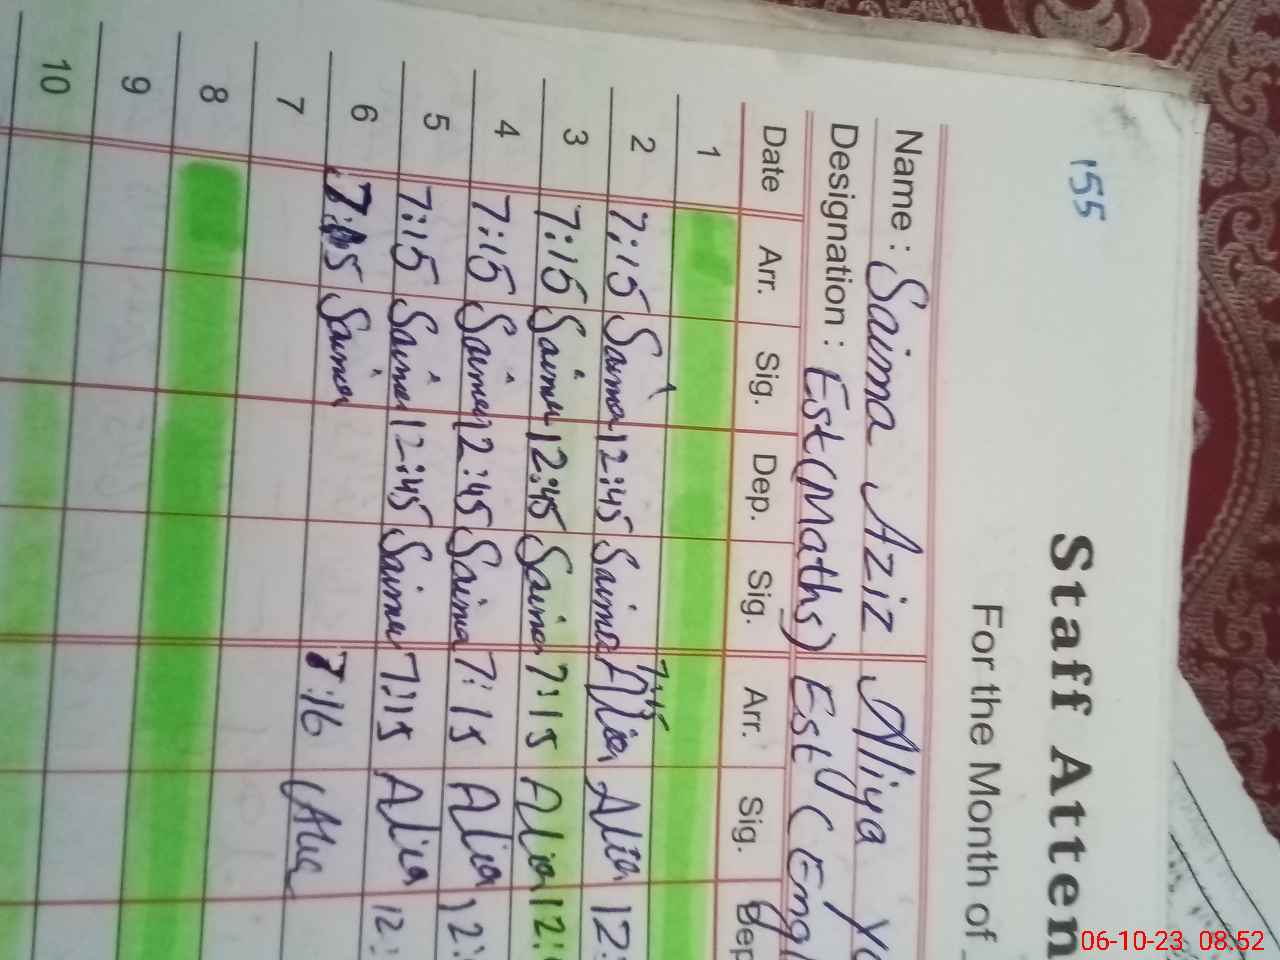 155
Staff Atten
For the Month of
Name : Saima Aziz Aliya
Designation : Est (Maths) Est (Engl
Date Arr. Sig. Dep. Sig. Arr. Sig. Dep
1
2 7:15 Saima 12:45 Saima 7:15 Alia Alia 12:
3 7:15 Saima 12:45 Saima 7:15 Alia 12:
4 7:15 Saima 12:45 Saima 7:15 Alia 12:
5 7:15 Saima 12:45 Saima 7:15 Alia 12:
6 7:15 Saima 7:16 Alia
7
8
9
10
06-10-23 08:52